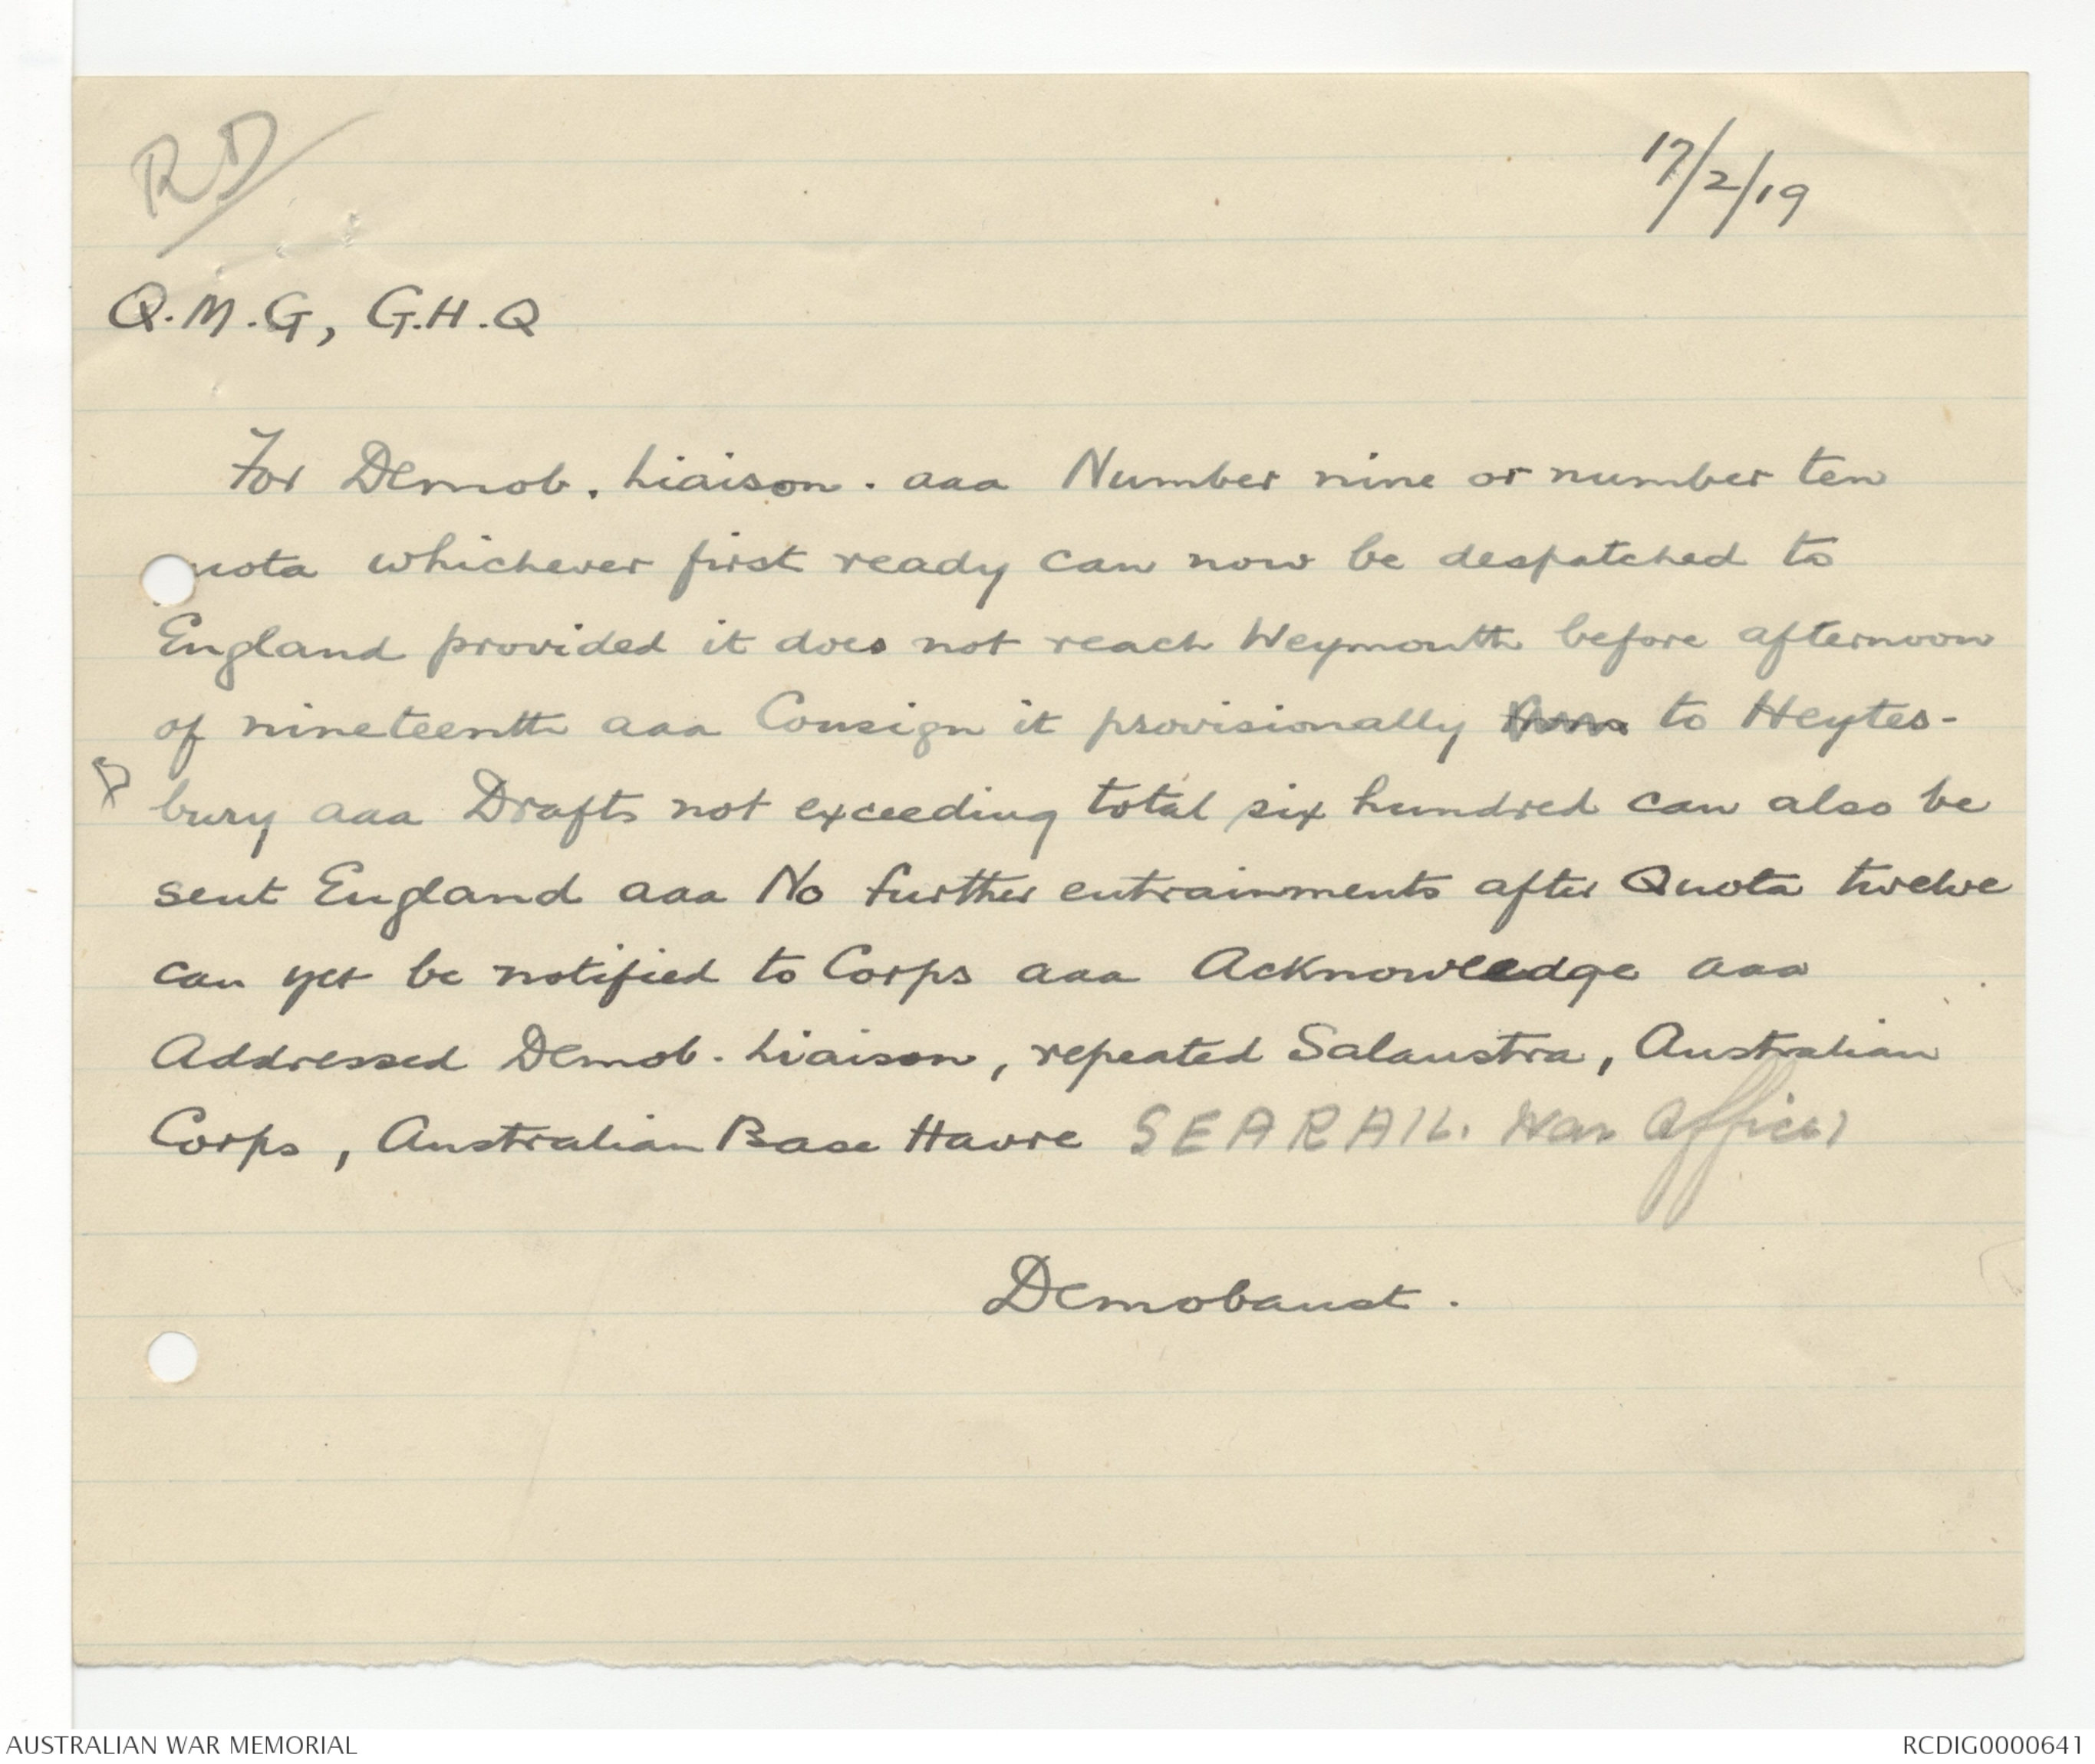 RD
17/2/19
Q.M.G, G.H.Q
For Demob. Liaison. aaa Number nine or number ten
uota whichever first ready can now be despatched to
England provided it does not reach Weymouth before afternoon
of nineteenth aaa Consign it provisionally to Heytes-
bury aaa Drafts not exceeding total six hundred can also be
sent England aaa No further entrainments after Quota twelve
can yet be notified to Corps aaa Acknowledge aaa
Addressed Demob. Liaison, repeated Salaustra, Australian
Corps, Australian Base Havre SEARAIL. War Office)
Demobaust.
AUSTRALIAN WAR MEMORIAL
RCDIG0000641